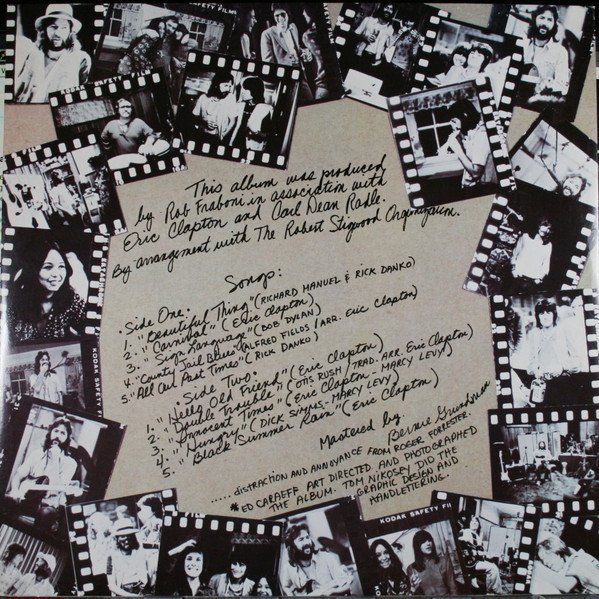 SAFETY FILM
KODAK SAFETY FILM
This album was produced
by Rob Fraboni in association with
Eric Clapton and Carl Dean Radle.
By arrangement with The Robert Stigwood Organization.
Songs:
• Side One •
1. "Beautiful Thing" (RICHARD MANUEL & RICK DANKO)
2. "Carnival" (Eric Clapton)
3. "Sign Language" (BOB DYLAN)
4. "County Jail Blues" (ALFRED FIELDS/ARR. Eric Clapton)
5. "All Our Past Times" (RICK DANKO)
• Side Two •
1. "Hello Old Friend" (Eric Clapton)
2. "Double Trouble" (OTIS RUSH/TRAD. ARR. Eric Clapton)
3. "Innocent Times" (Eric Clapton - MARCY LEVY)
4. "Hungry" (DICK SIMMS - MARCY LEVY)
5. "Black Summer Rain" (Eric Clapton)
Mastered by
Bernie Grundman
..... DISTRACTION AND ANNOYANCE FROM ROGER FORRESTER.
*ED CARAEFF ART DIRECTED AND PHOTOGRAPHED
THE ALBUM. TOM NIKOSEY DID THE
GRAPHIC DESIGN AND
HANDLETTERING.
KODAK SAFETY
KODAK SAFETY FI